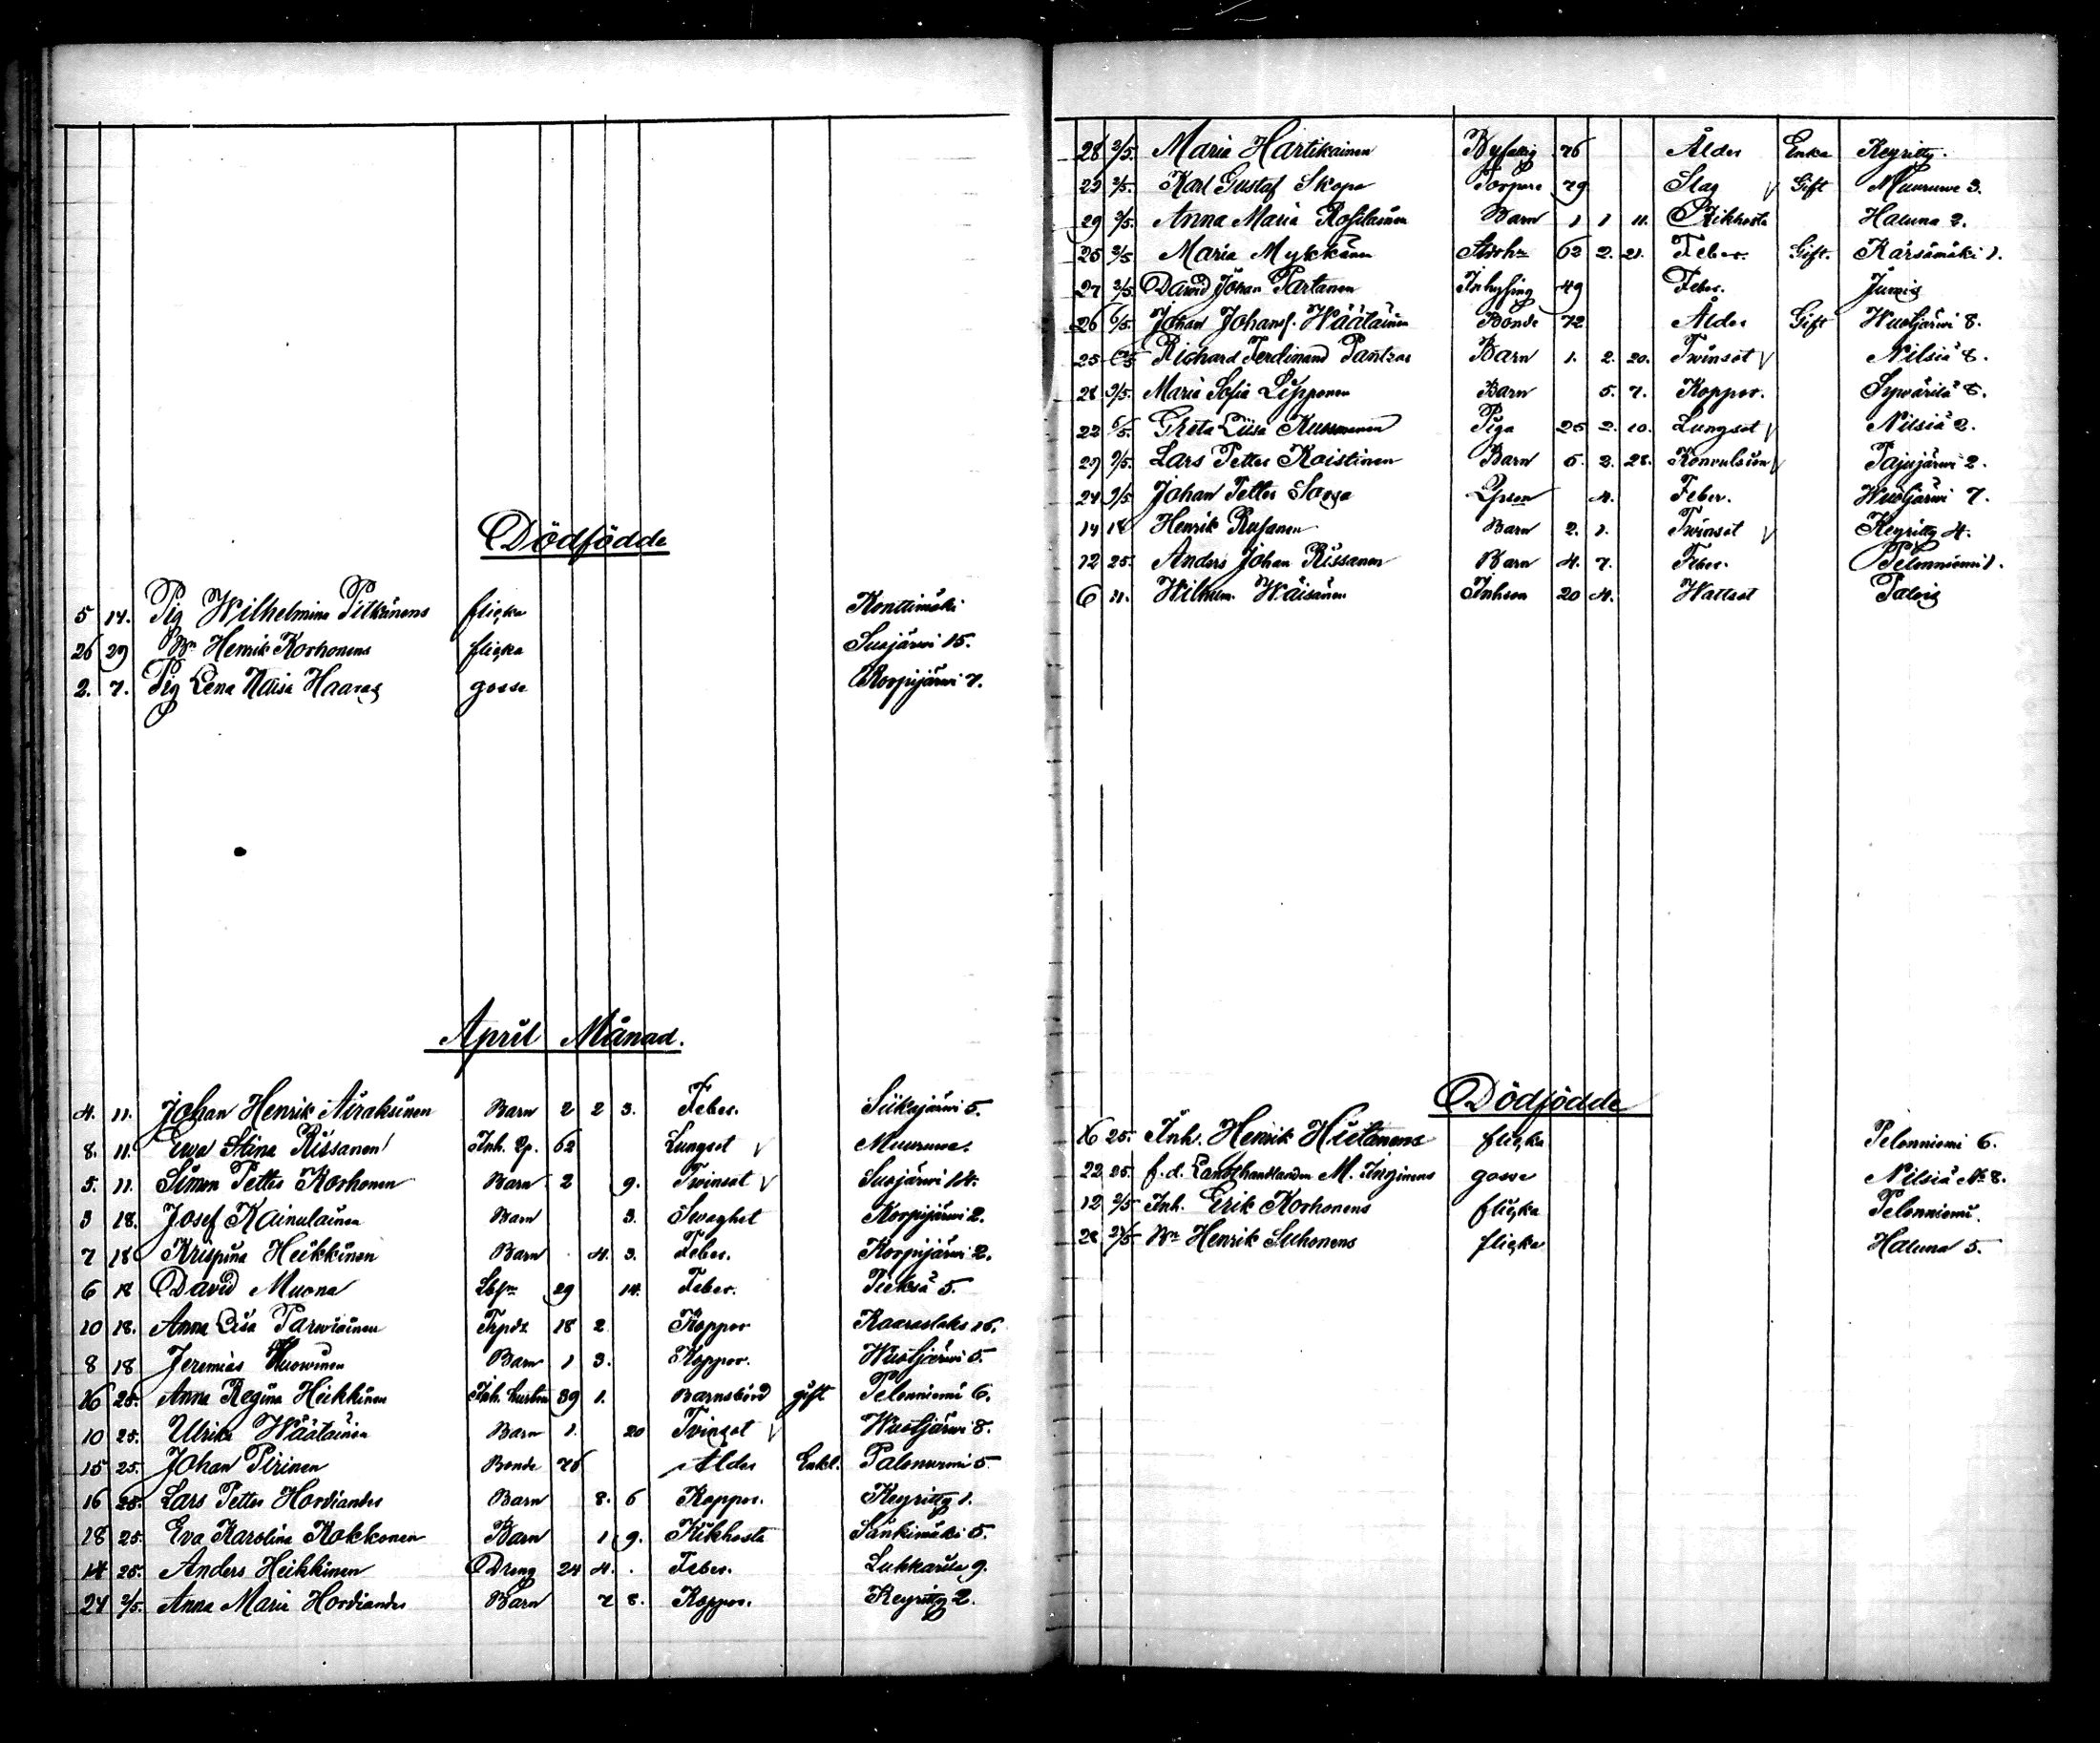 Dödfödde
5 14. Pig Wilhelmina Pitkänens flicka Konttimäki
26 29 Bn Henrik Korhonens flicka Susjärwi 15.
2. 7. Pig Lena Kaisa Haaras gosse Korpijärwi 7.
April Månad.
4. 11. Johan Henrik Airaksinen Barn 2 2 3. Feber. Siikajärwi 5.
8. 11. Ewa Stina Rissanen Inh. 62 Lungsot √ Muuruwe.
5. 11. Simon Petter Korhonen Barn 2 9. Twinsot √ Susjärwi 14.
3 18. Josef Kainulainen Barn 3. Swaghet Korpijärwi 2.
7 18 Krispina Heikkinen Barn 4. 3. Feber. Korpijärwi 2.
6 18 David Muona 29 14. Feber. Pieksä 5.
10 18. Anna Lisa Parwiainen 18 2 Koppor Kaaraslaks 16.
8 18 Jeremias Barn 1 3. Koppor. Wuotjärwi 5.
16 25. Anna Regina Heikkinen Inh. hustru 39 1. Barnsbörd gift Pelonniemi 6.
10 25. Ulrika Wäätäinen Barn 1. 20 Tvinsot √ Wuotjärwi 8.
15 25. Johan Pirinen Bonde 76 Ålder Enkl. Palonurmi 5
16 25. Lars Petter Hordiander Barn 8. 6 Koppor. Keyritty 1.
18 25. Eva Karolina Kokkonen Barn 1 9. Kikhosta Sänkimäki 5.
14 25. Anders Heikkinen Dreng 24 4. Feber. Lukkarila 9.
24 2/5. Anna Maria Hordiander Barn 7 8. Koppor. Keyritty 2.
28 2/5. Maria Hartikainen Byfattig 76 Ålder Enka Keyritty.
22 2/5. Karl Gustaf Skopa Torpare 79 Slag √ Gift Muuruwe 3.
29 2/5. Anna Maria Barn 1 1 11. Kikhosta Haluna 2.
25 2/5 Maria Mykkänen 62 2. 21. Feber. Gift. Kärsämäki 1.
27 2/5. Dawid Johan Partanen Inhysing 49 Feber.
26 6/5. Johan Johans. Wäätäinen Bonde 72 Ålder Gift Wuotjärwi 8.
25 Richard Ferdinand Pantzar Barn 1. 2. 20. Twinsot √ Nilsiä 8.
28 9/5. Maria Sofia Lipponen Barn 5. 7. Koppor. Sywärilä 8.
22 6/5. Greta Liisa Piga 25 2. 10. Lungsot √ Nilsiä 2.
29 9/5. Lars Petter Koistinen Barn 5. 2. 28. Konvulsion √ Pajujärwi 2.
24 9/5 Johan Petter Sorsa 4. Feber. Wuotjärwi 7.
14 18 Henrik Barn 2. 1. Twinsot √ Keyritty 4.
12 25. Anders Johan Rissanen Barn 4. 7. Feber. Pelonniemi 1.
6 11. Wilhelm. Wäisänen Inhson 20 4. Wattsot
Dödfödde
16 25. Inh. Henrik Hietanens flicka Pelonniemi 6.
22 25. f.d. Landthandlanden M. Inginens gosse Nilsiä № 8.
12 2/5 Inh. Erik Korhonens flicka Pelonniemi.
28 Bn Henrik Suhonens flicka Haluna 5.